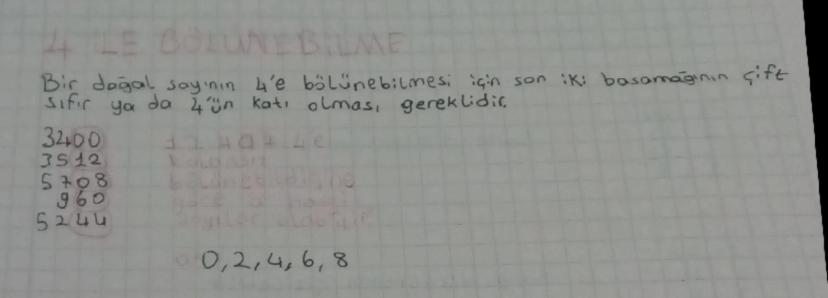 4 LE BÖLÜNEBİLME
Bir doğal sayının 4'e bölünebilmesi için son iki basamağının çift
sıfır ya da 4'ün katı olması gereklidir.
3400
3512
5708
960
5244
0, 2, 4, 6, 8